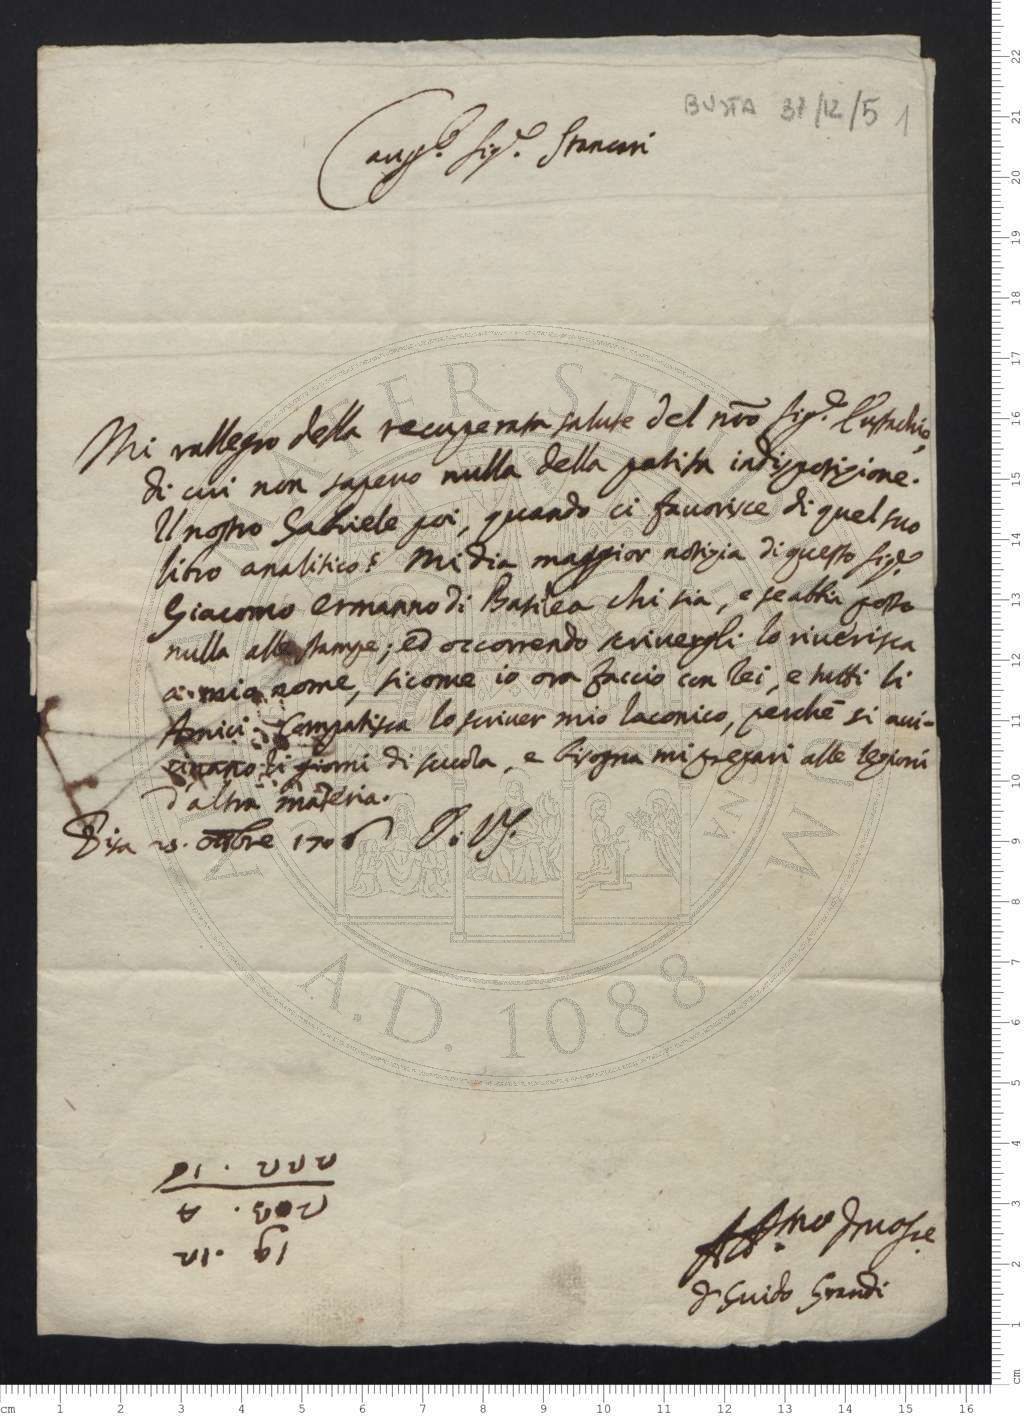 BUSTA 38/12/5 1
Caris.o Sig.r Stancari
Mi rallegro della recuperata salute del nrō Sig.r Eustachio,
di cui non sapevo nulla della patita indisposizione.
Il nostro Gabriele poi, quando ci favorisce di quel suo
libro analitico? Mi dia maggior notizia di questo Sig.r
Giacomo Ermanno di Basilea chi sia, e se abbia posto
nulla alle stampe; ed occorrendo scrivergli lo riverisca
a mio nome, sicome io ora faccio con lei, e tutti li
Amici. Compatisca lo scriver mio laconico, perchè si avi-
cinano li giorni di scuola, e bisogna mi prepari alle lezioni
d'altra materia.
Pisa 23. ottobre 1706 D. V.S.
222 . 16
203 . 4
19 . 12
Aff.mo
D Guido Grandi
MATER STUDIORUM
A.D. 1088
cm 1 2 3 4 5 6 7 8 9 10 11 12 13 14 15 16
cm 1 2 3 4 5 6 7 8 9 10 11 12 13 14 15 16 17 18 19 20 21 22